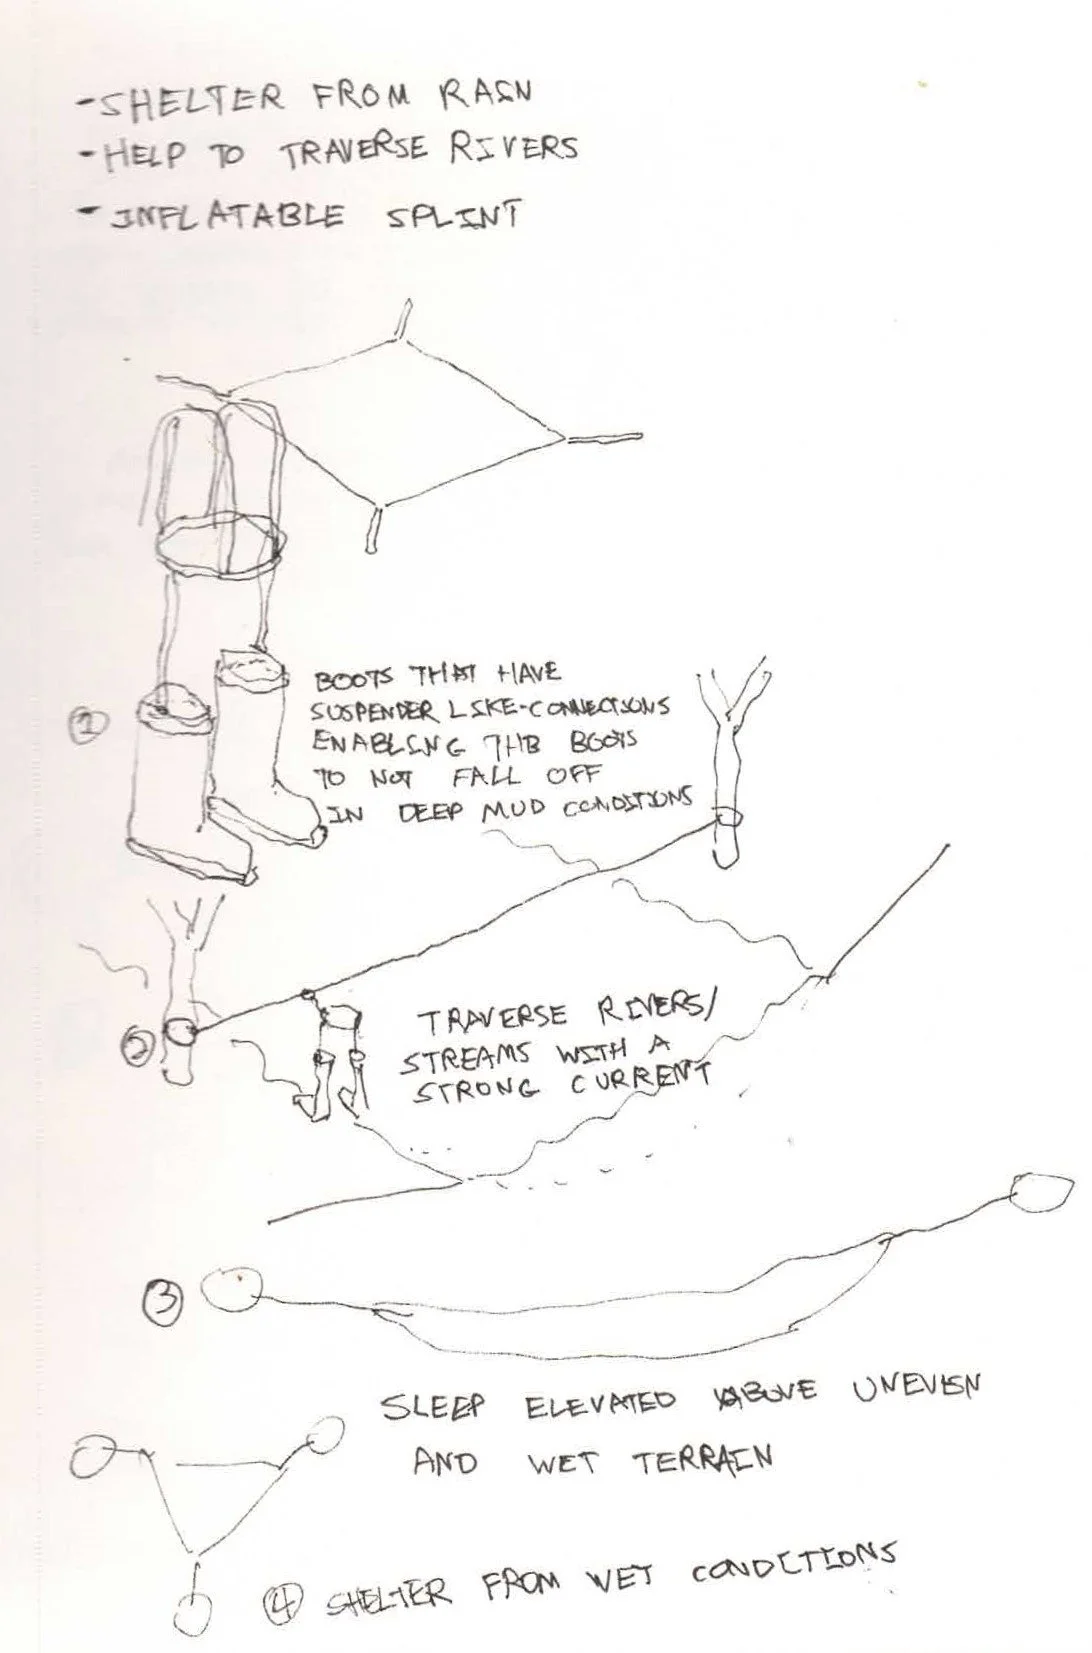 - SHELTER FROM RAIN
- HELP TO TRAVERSE RIVERS
- INFLATABLE SPLINT
①
BOOTS THAT HAVE
SUSPENDER LIKE-CONNECTIONS
ENABLING THE BOOTS
TO NOT FALL OFF
IN DEEP MUD CONDITIONS
②
TRAVERSE RIVERS/
STREAMS WITH A
STRONG CURRENT
③
SLEEP ELEVATED ABOVE UNEVEN
AND WET TERRAIN
④ SHELTER FROM WET CONDITIONS